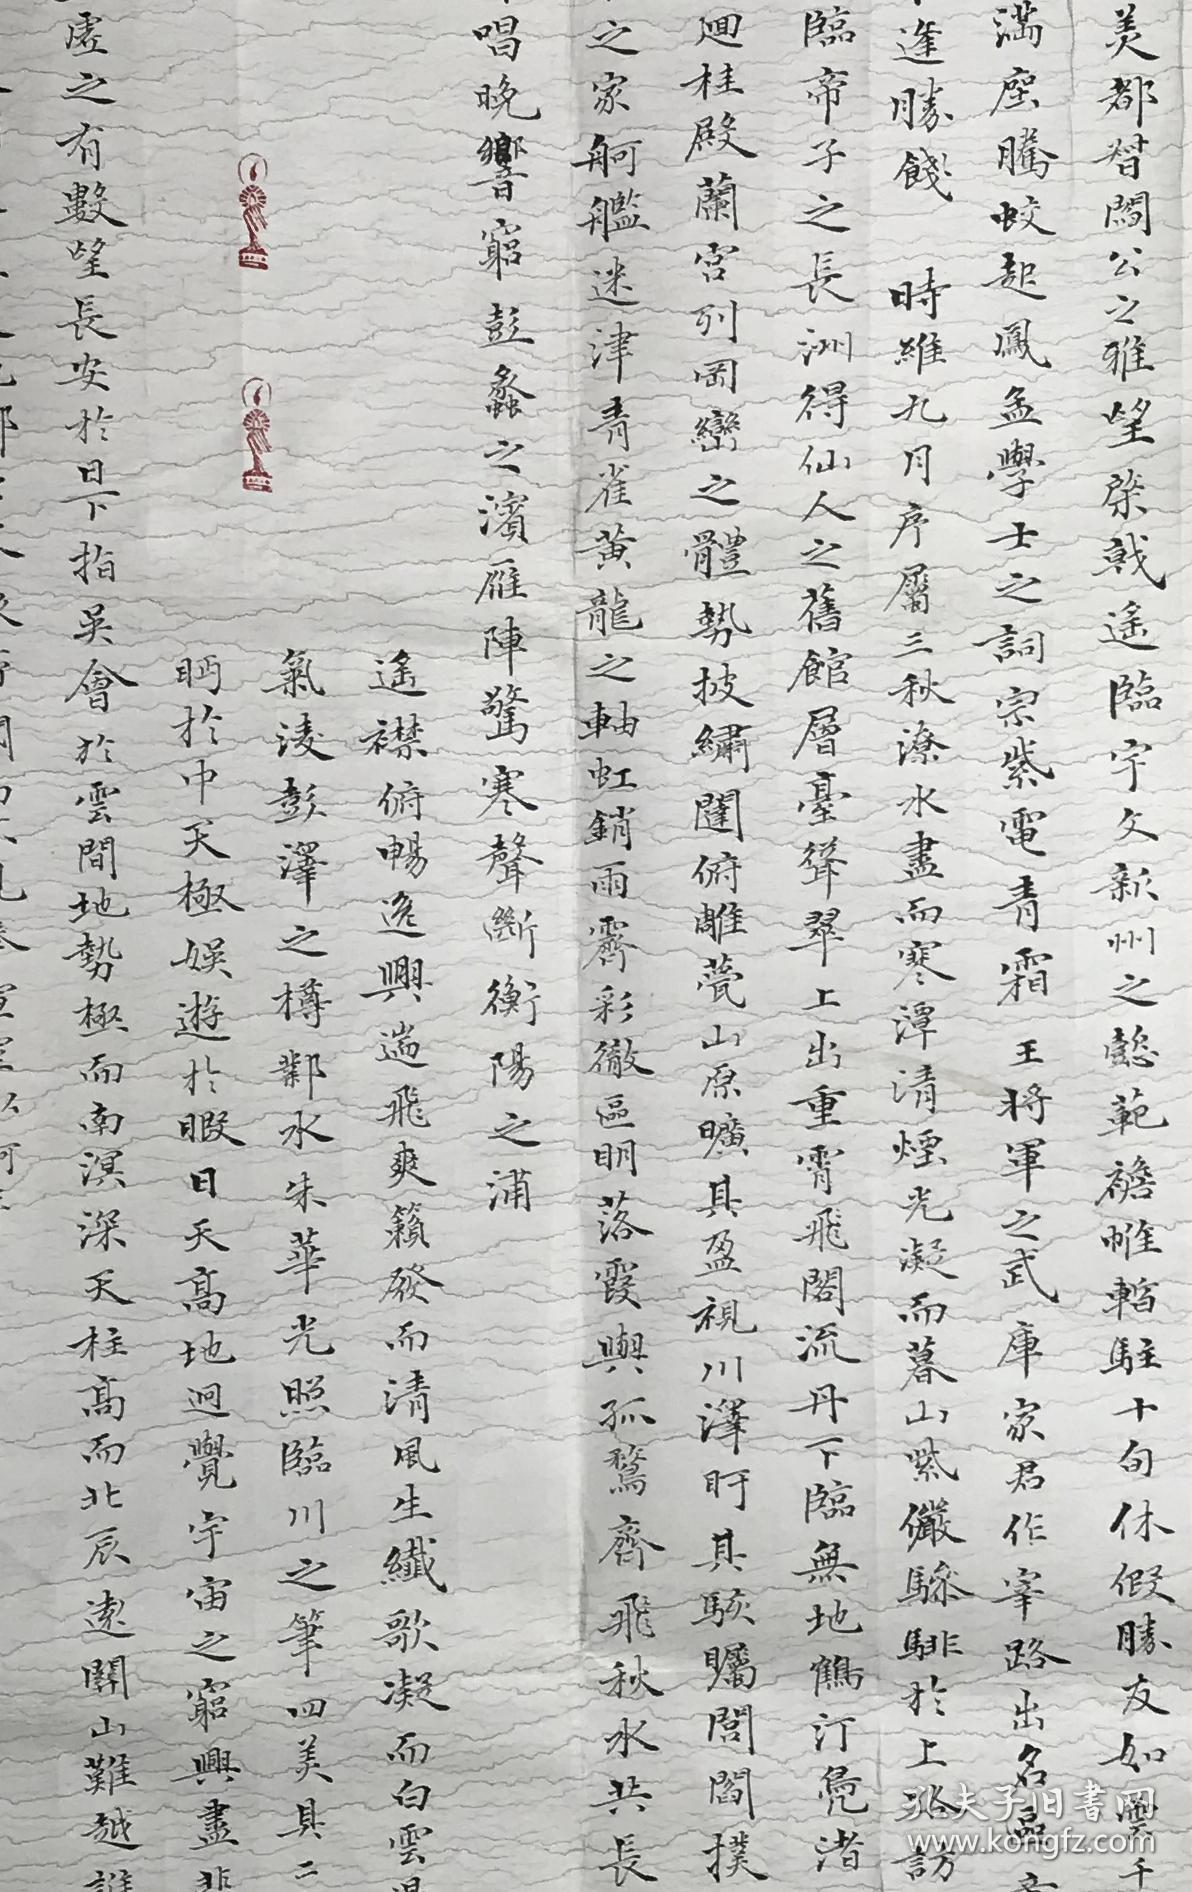 美都督閻公之雅望棨戟遙臨宇文新州之懿範襜帷暫駐十旬休假勝友如雲千
滿座騰蛟起鳳孟學士之詞宗紫電青霜王將軍之武庫家君作宰路出名區
逢勝餞 時維九月序屬三秋潦水盡而寒潭清煙光凝而暮山紫儼驂騑於上路訪
臨帝子之長洲得仙人之舊館層臺聳翠上出重霄飛閣流丹下臨無地鶴汀鳧渚
迴桂殿蘭宮列岡巒之體勢披繡闥俯雕甍山原曠其盈視川澤盱其駭矚閭閻撲
之家舸艦迷津青雀黃龍之軸虹銷雨霽彩徹區明落霞與孤鶩齊飛秋水共長
唱晚響窮彭蠡之濱雁陣驚寒聲斷衡陽之浦
遙襟俯暢逸興遄飛爽籟發而清風生纖歌凝而白雲
氣淩彭澤之樽鄴水朱華光照臨川之筆四美具二
眄於中天極娛遊於暇日天高地迥覺宇宙之窮興盡
虛之有數望長安於日下指吳會於雲間地勢極而南溟深天柱高而北辰遠關山難越誰
孔夫子旧书网
www.kongfz.com